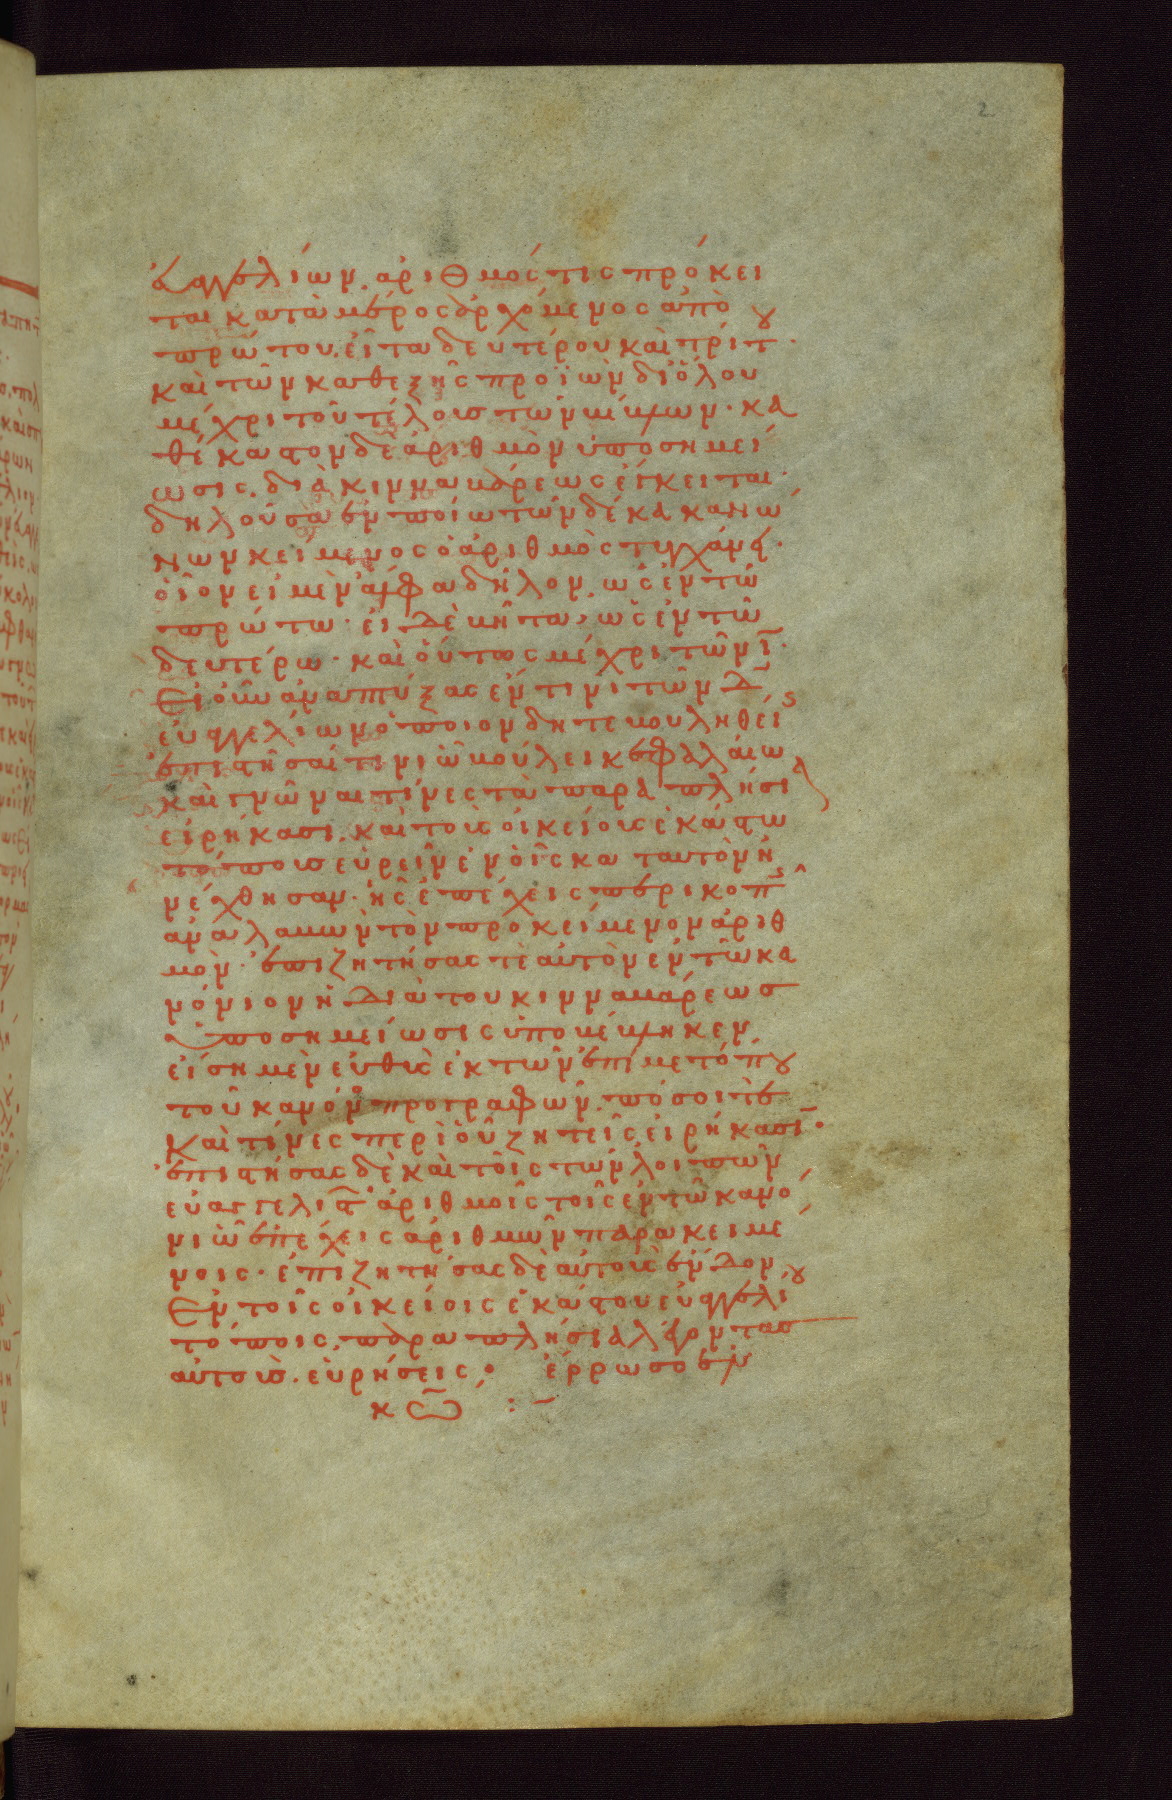 2
ἀγγελίων. ἀριθμός τις πρόκει
ται κατὰ μέρος ἀρχόμενος ἀπὸ τοῦ
πρώτου. εἶτα δευτέρου καὶ τρίτ·
καὶ τῶν καθεξῆς προϊὼν δι' ὅλου
μέχρι τοῦ τέλους τῶν
θέκαστον δὲ ἀριθμὸν ὑποσημεί
ωσις. διὰ κινναβάρεως ἔκκειται·
δηλοῦσα ἐν ποίω τῶν δέκα κανό
νων κείμενος ὁ ἀριθμὸς τυγχάνει·
οἷον εἰ μὲν α δῆλον. ὡς ἐν τῶ
πρώτω· εἰ δὲ βῆτα, ὡς ἐν τῶ
δευτέρω· καὶ οὕτως μέχρι τῶν ι·
Εἰ οὖν ἀναπτύξας ἕν τι νι τῶν δ
εὐαγγελίων ὁποιονδήποτε βουληθεί
ἐπιστῆσαί τινι ὧ βούλει κεφαλαίω
καὶ γνῶναι τίνες τὰ παραπλήσι
εἰρήκασι. καὶ τοὺς οἰκείους ἑκάστω
τόπους εὑρεῖν ἐν οἷς κατα ταυτὸν ἠ
νέχθησαν· ἧς ἐπέχεις περικοπ
ἀναλαβὼν τὸν προκείμενον ἀριθ
μὸν· ἐπιζητήσας τὲ αὐτὸν ἐν τῶ κα
νόνι ὃν ἡ διὰ τοῦ κινναβάρεωσ
ὑποσημείωσις ὑποβέβληκεν
εἴση μὲν εὐθὺς ἐκ τῶν ἐπὶ μετόπου
τοῦ κανόν προγραφῶν. πόσοι τὲ
καὶ τίνες περὶ οὗ ζητεῖς εἰρήκασι·
ἐπιστήσας δὲ καὶ τοῖς τῶν λοιπῶν
εὐαγγελιστ ἀριθμοῖς τοῖς ἐν τῶ κανό
νι ὧ ἐπέχεις ἀριθμῶν παρακειμέ
νοις· ἐπιζητήσας δὲ αὐτοὺς ἔνδον
Ἐν τοῖς οἰκείοις ἑκάστου εὐαγγελί
τόποις. παραπλήσια λέγοντας
αὐτοὺς. εὑρήσεις· ἔρρωσο ἐν
κω :-